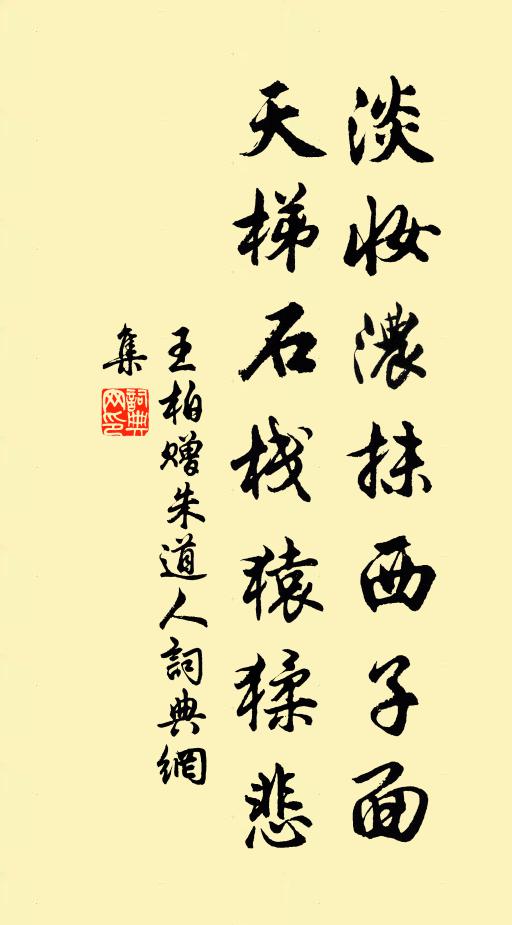 淡妆濃抹西子面
天梯石栈猿猱悲
王柏赠朱道人詞典網
集
詞典
网印